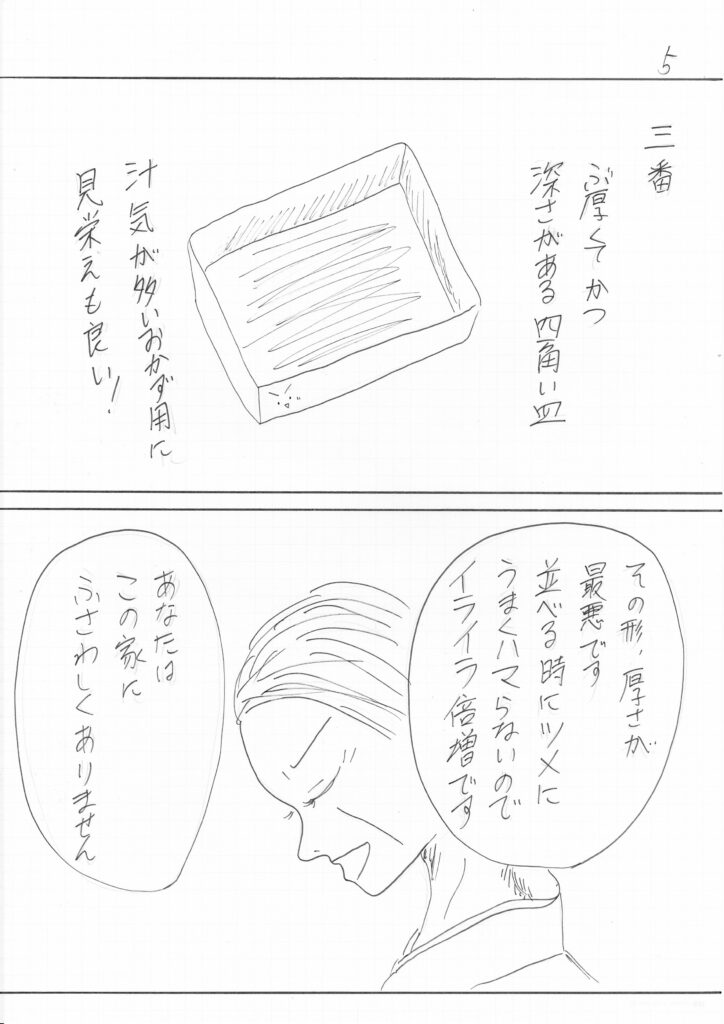 5
三番
ぶ厚くてかつ
深さがある四角い皿
汁気が多いおかず用に
見栄えも良い!
その形、厚さが
最悪です
並べる時にツメに
うまくハマらないので
イライラ倍増です
あなたは
この家に
ふさわしくありません